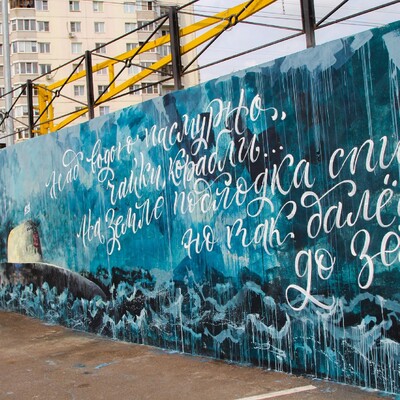 Над водою пасмурно,
чайки, корабли...
На земле подлодка спи
но так далё
до зе